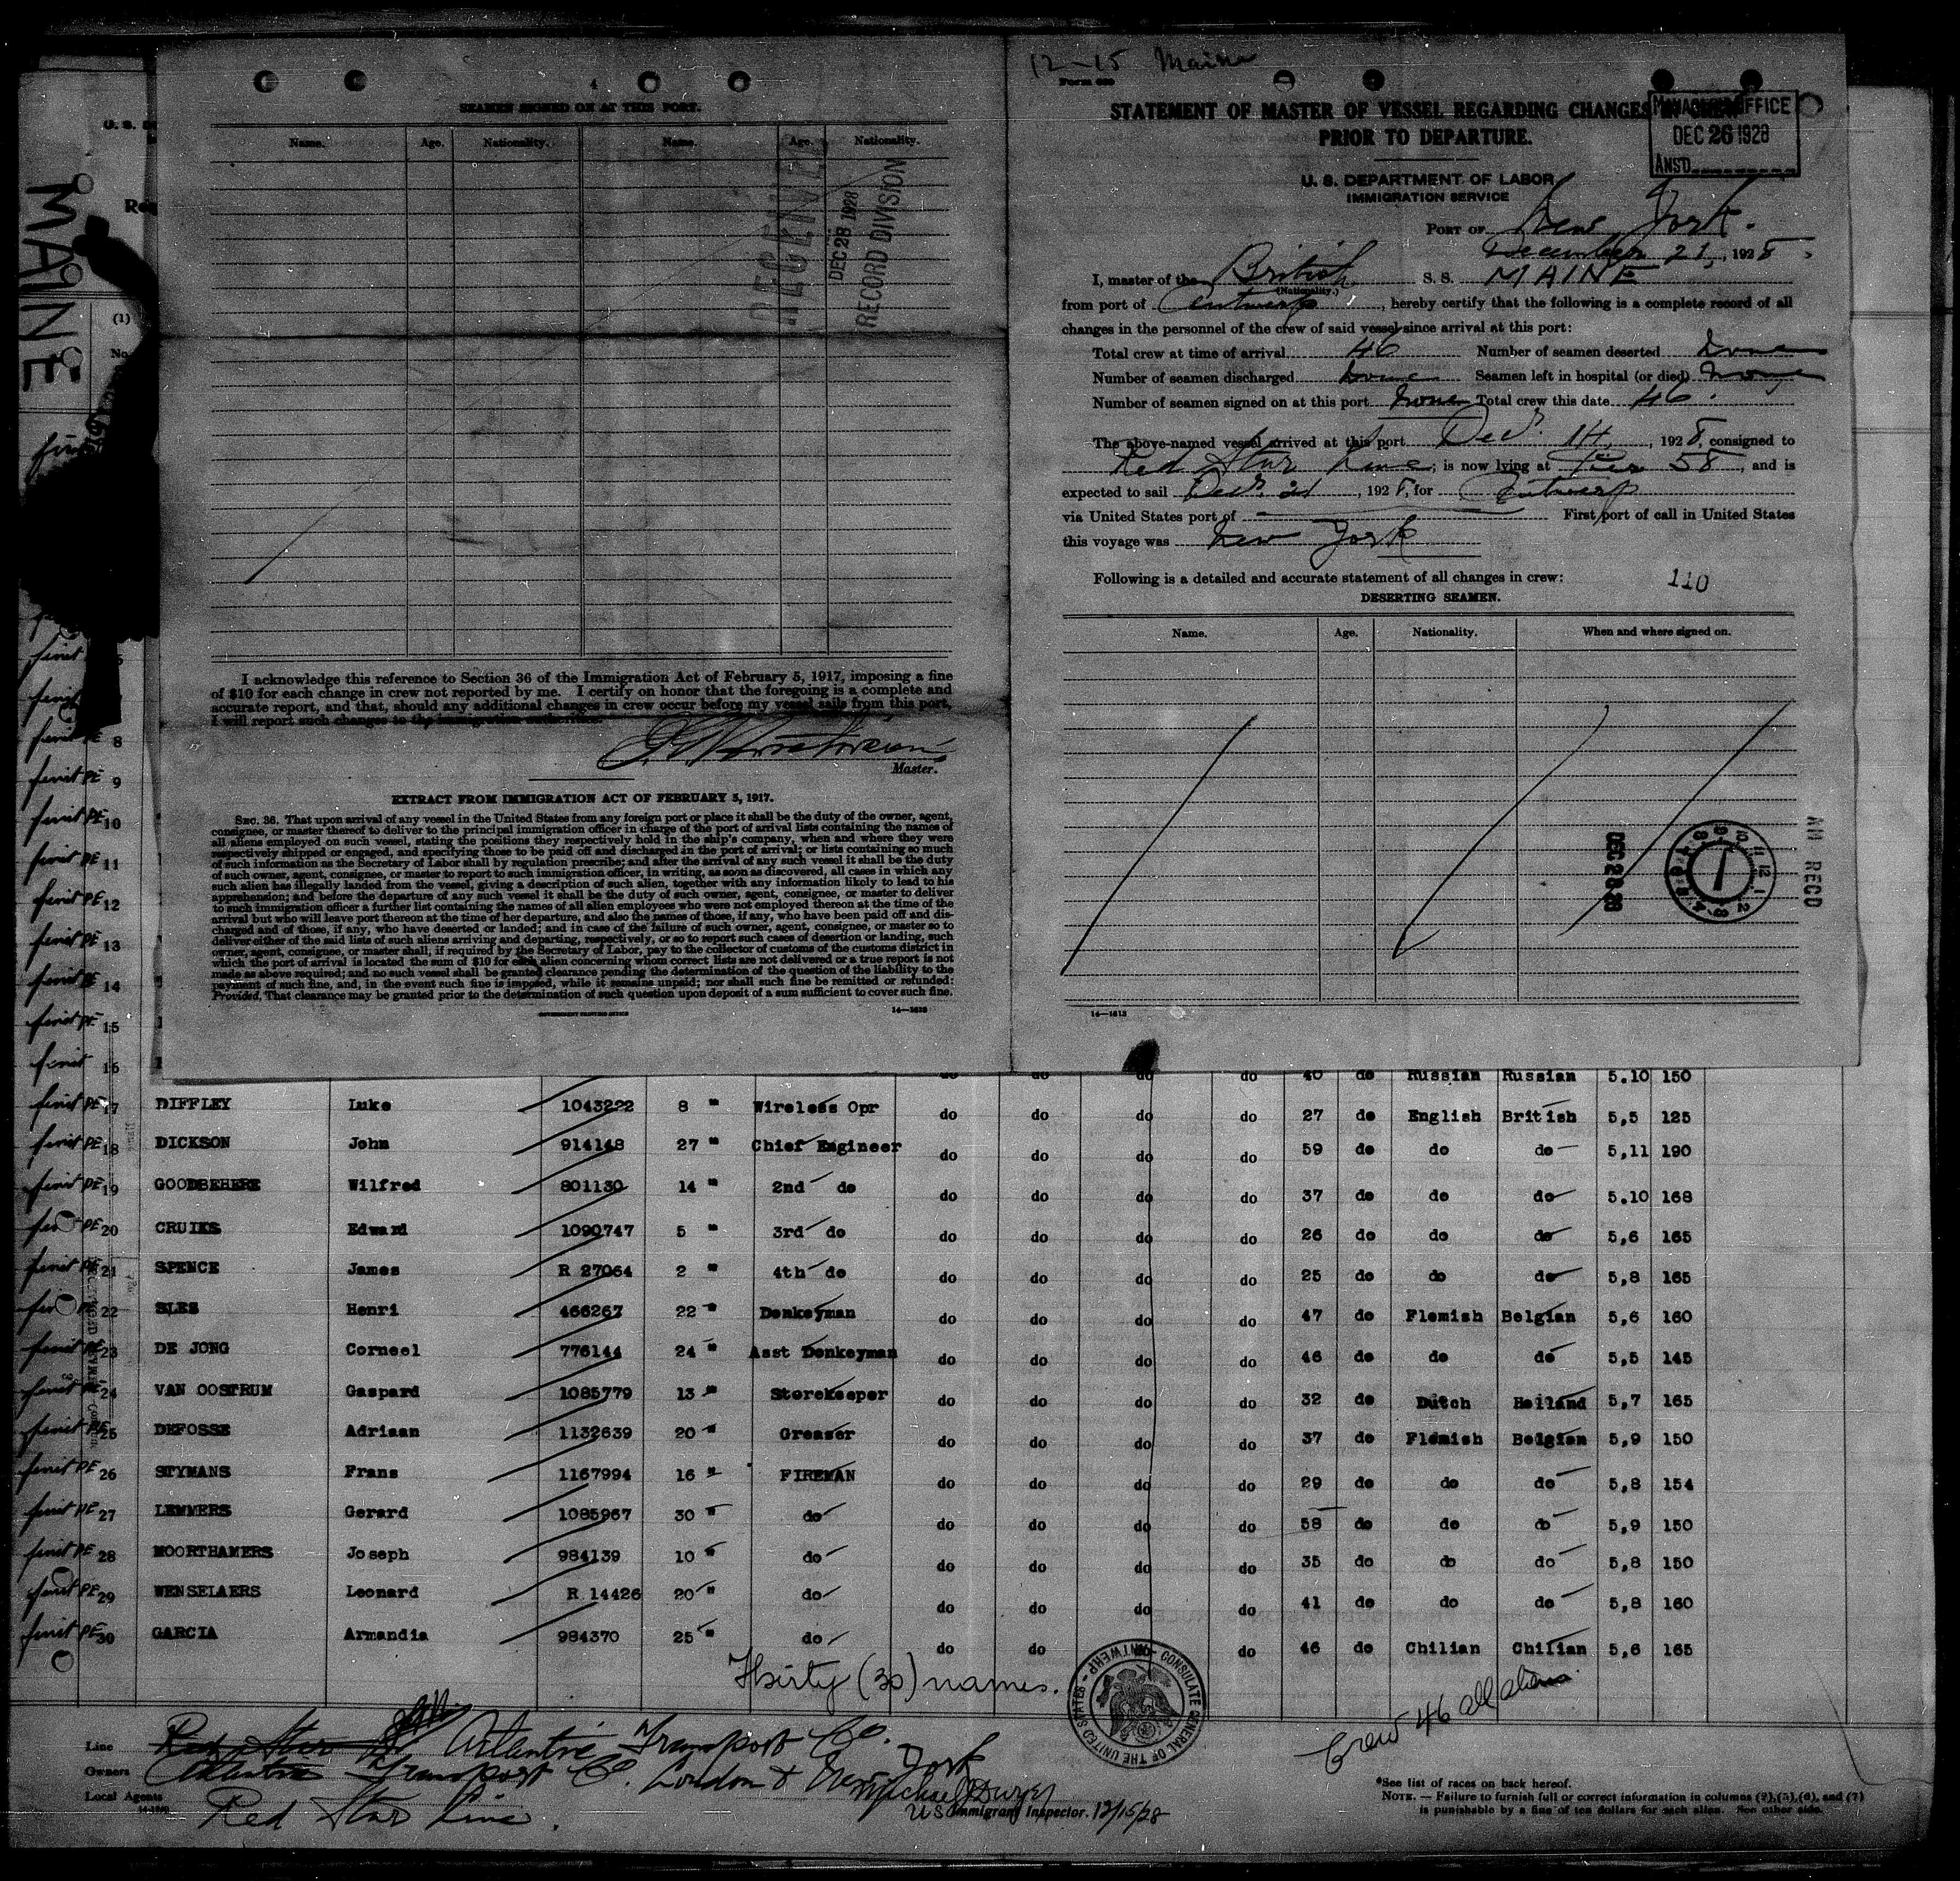 4
SEAMEN SIGNED ON AT THIS PORT.
Name. Age. Nationality. Name. Age. Nationality.
RECEIVED
DEC 28 1928
RECORD DIVISION
I acknowledge this reference to Section 36 of the Immigration Act of February 5, 1917, imposing a fine
of $10 for each change in crew not reported by me. I certify on honor that the foregoing is a complete and
accurate report, and that, should any additional changes in crew occur before my vessel sails from this port,
I will report such changes to the immigration authorities.
Master.
EXTRACT FROM IMMIGRATION ACT OF FEBRUARY 5, 1917.
SEC. 36. That upon arrival of any vessel in the United States from any foreign port or place it shall be the duty of the owner, agent,
consignee, or master thereof to deliver to the principal immigration officer in charge of the port of arrival lists containing the names of
all aliens employed on such vessel, stating the positions they respectively hold in the ship's company, when and where they were
respectively shipped or engaged, and specifying those to be paid off and discharged in the port of arrival; or lists containing so much
of such information as the Secretary of Labor shall by regulation prescribe; and after the arrival of any such vessel it shall be the duty
of such owner, agent, consignee, or master to report to such immigration officer, in writing, as soon as discovered, all cases in which any
such alien has illegally landed from the vessel, giving a description of such alien, together with any information likely to lead to his
apprehension; and before the departure of any such vessel it shall be the duty of such owner, agent, consignee, or master to deliver
to such immigration officer a further list containing the names of all alien employees who were not employed thereon at the time of the
arrival but who will leave port thereon at the time of her departure, and also the names of those, if any, who have been paid off and dis-
charged and of those, if any, who have deserted or landed; and in case of the failure of such owner, agent, consignee, or master so to
deliver either of the said lists of such aliens arriving and departing, respectively, or so to report such cases of desertion or landing, such
owner, agent, consignee, or master shall, if required by the Secretary of Labor, pay to the collector of customs of the customs district in
which the port of arrival is located the sum of $10 for each alien concerning whom correct lists are not delivered or a true report is not
made as above required; and no such vessel shall be granted clearance pending the determination of the question of the liability to the
payment of such fine, and, in the event such fine is imposed, while it remains unpaid; nor shall such fine be remitted or refunded:
Provided, That clearance may be granted prior to the determination of such question upon deposit of a sum sufficient to cover such fine.
GOVERNMENT PRINTING OFFICE
12-15 Maine
Form 680
STATEMENT OF MASTER OF VESSEL REGARDING CHANGES IN CREW
PRIOR TO DEPARTURE.
OFFICE
DEC 26 1928
ANSD
U. S. DEPARTMENT OF LABOR
IMMIGRATION SERVICE
PORT OF New York.
December 21, 1928.
I, master of the British S. S. MAINE
(Nationality.)
from port of Antwerp, hereby certify that the following is a complete record of all
changes in the personnel of the crew of said vessel since arrival at this port:
Total crew at time of arrival 46 Number of seamen deserted None
Number of seamen discharged None Seamen left in hospital (or died) None
Number of seamen signed on at this port None Total crew this date 46.
The above-named vessel arrived at this port Decr. 14, 1928, consigned to
Red Star Line; is now lying at Pier 58, and is
expected to sail Decr. 21, 1928, for Antwerp
via United States port of First port of call in United States
this voyage was New York
Following is a detailed and accurate statement of all changes in crew: 110
DESERTING SEAMEN.
Name. Age. Nationality. When and where signed on.
DEC 28 28
RECD
14—1613
MAINE
do do do do 40 do Russian Russian 5.10 150
17 DIFFLEY Luke 1043222 8 " Wireless Opr do do do do 27 do English British 5,5 125
18 DICKSON John 914148 27 " Chief Engineer do do do do 59 do do do 5,11 190
19 GOODBEHERE Wilfred 801130 14 " 2nd do do do do do 37 do do do 5.10 168
20 CRUIKS Edward 1090747 5 " 3rd do do do do do 26 do do do 5,6 165
21 SPENCE James R 27064 2 " 4th do do do do do 25 do do do 5,8 165
22 SLES Henri 466267 22 " Donkeyman do do do do 47 do Flemish Belgian 5,6 160
23 DE JONG Corneel 776144 24 " Asst Donkeyman do do do do 46 do do do 5,5 145
24 VAN OOSTRUM Gaspard 1085779 13 " Storekeeper do do do do 32 do Dutch Holland 5,7 165
25 DEFOSSE Adriaan 1132639 20 " Greaser do do do do 37 do Flemish Belgian 5,9 150
26 STYMANS Frans 1167994 16 " FIREMAN do do do do 29 do do do 5,8 154
27 LEMMERS Gerard 1085967 30 " do do do do do 58 do do do 5,9 150
28 MOORTHAMERS Joseph 984139 10 " do do do do do 35 do do do 5,8 150
29 WENSELAERS Leonard R 14426 20 " do do do do do 41 do do do 5,8 160
30 GARCIA Armandia 984370 25 " do do do do do 46 do Chilian Chilian 5,6 165
Thirty (30) names.
CONSULATE GENERAL OF THE UNITED STATES - ANTWERP
Crew 46 all aliens.
Line Red Star Atlantic Transport Co.
Owners Atlantic Transport Co. London & New York
Local Agents Red Star Line.
Michael Dwyer
US Immigrant Inspector. 12/15/28
*See list of races on back hereof.
NOTE. — Failure to furnish full or correct information in columns (2),(5),(6), and (7)
is punishable by a fine of ten dollars for each alien. See other side.